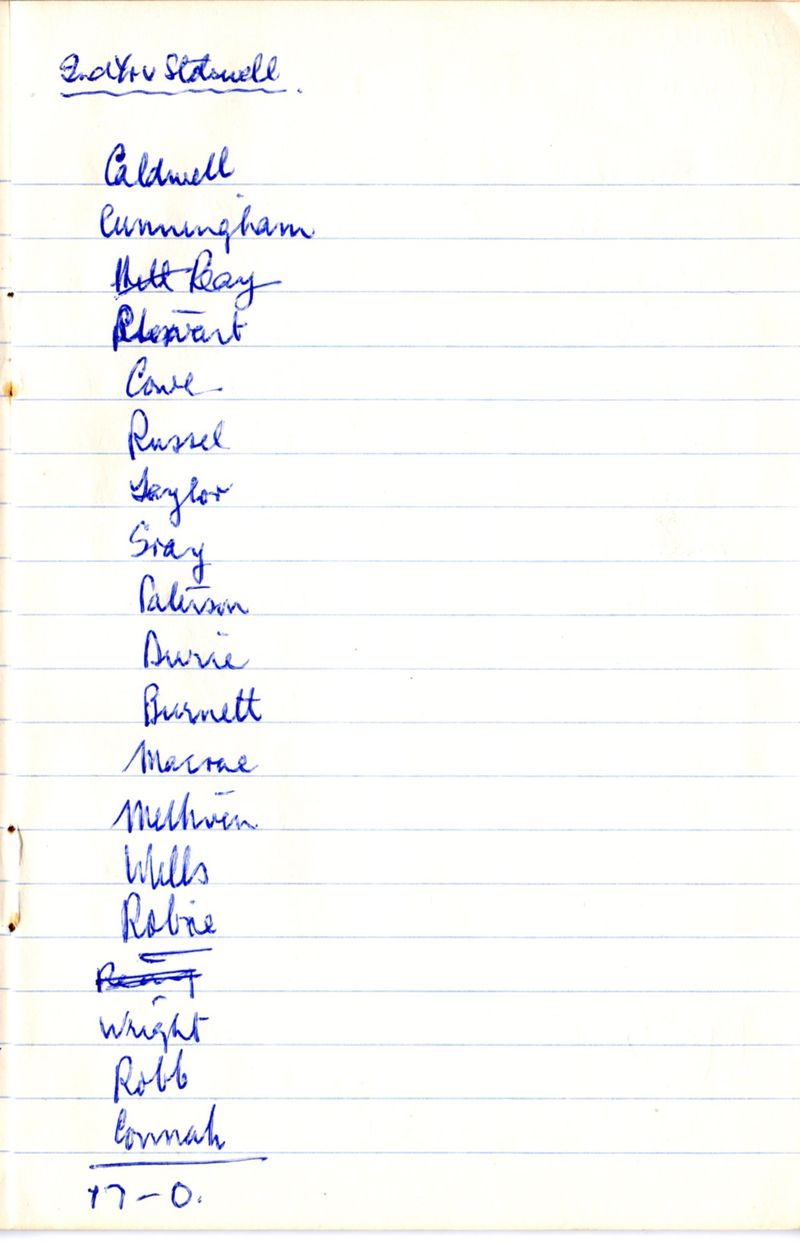 2nd Yr v Stobswell
Caldwell
Cunningham
Reay
Stewart
Cowe
Russel
Taylor
Gray
Paterson
Durie
Burnett
Macrae
Methven
Wells
Robbie
Wright
Robb
Connah
17-0.